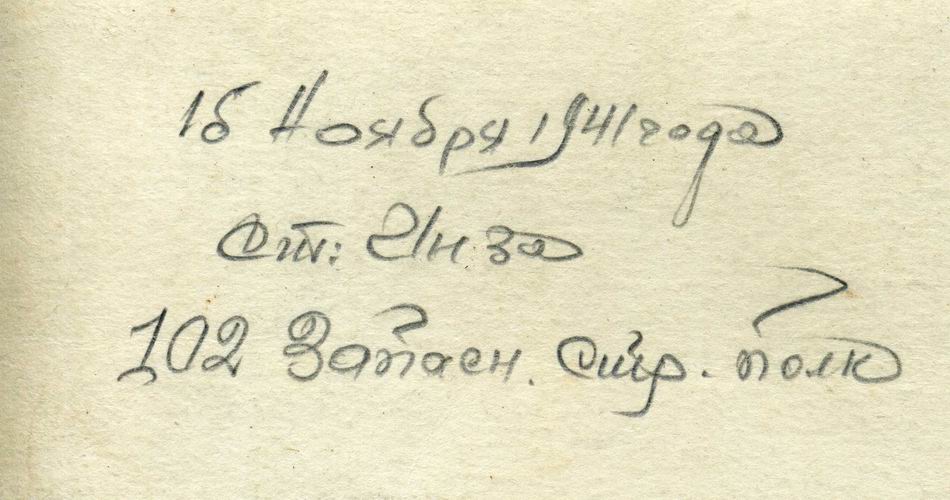 16 Ноября 1941 года
Ст: Инза
102 Запасн. Стр. полк